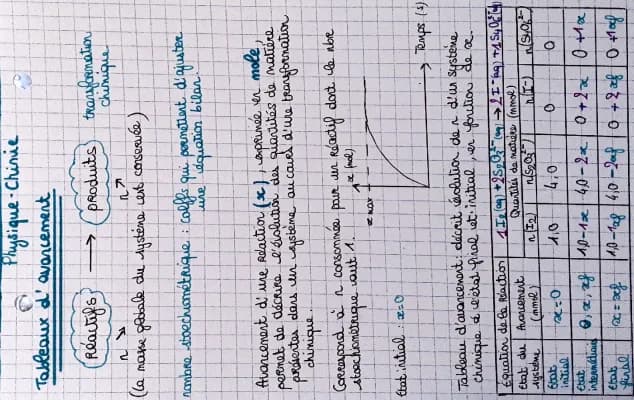 Physique-Chimie
Tableaux d'avancement
Réactifs → Produits
transformation chimique
n ↘ n ↗
(la masse globale du système est conservée)
nombre stoechiométrique : coeffs qui permettent d'ajuster
une équation bilan.
Avancement d'une réaction (x), exprimée en mole,
permet de décrire l'évolution des quantités de matière
présentes dans un système au cours d'une transformation
chimique.
Correspond à n consommée par un réactif dont le nbre
stoechiométrique vaut 1.
x (mol)
x max
Temps (s)
État initial : x=0
Tableau d'avancement : décrit évolution de n d'un système
chimique à l'état final et initial, en fonction de x.
Equation de la Réaction 1I2(aq) + 2S2O3²⁻(aq) → 2I⁻(aq) + 1S4O6²⁻(aq)
Etat du système Avancement (mmol) Quantités de matière (mmol)
n(I2) n(S2O3²⁻) n(I⁻) n(S4O6²⁻)
Etat initial x=0 1,0 4,0 0 0
Etat intermédiaire 0, x, xf 1,0-1x 4,0-2x 0+2x 0+1x
Etat final x=xf 1,0-1xf 4,0-2xf 0+2xf 0+1xf